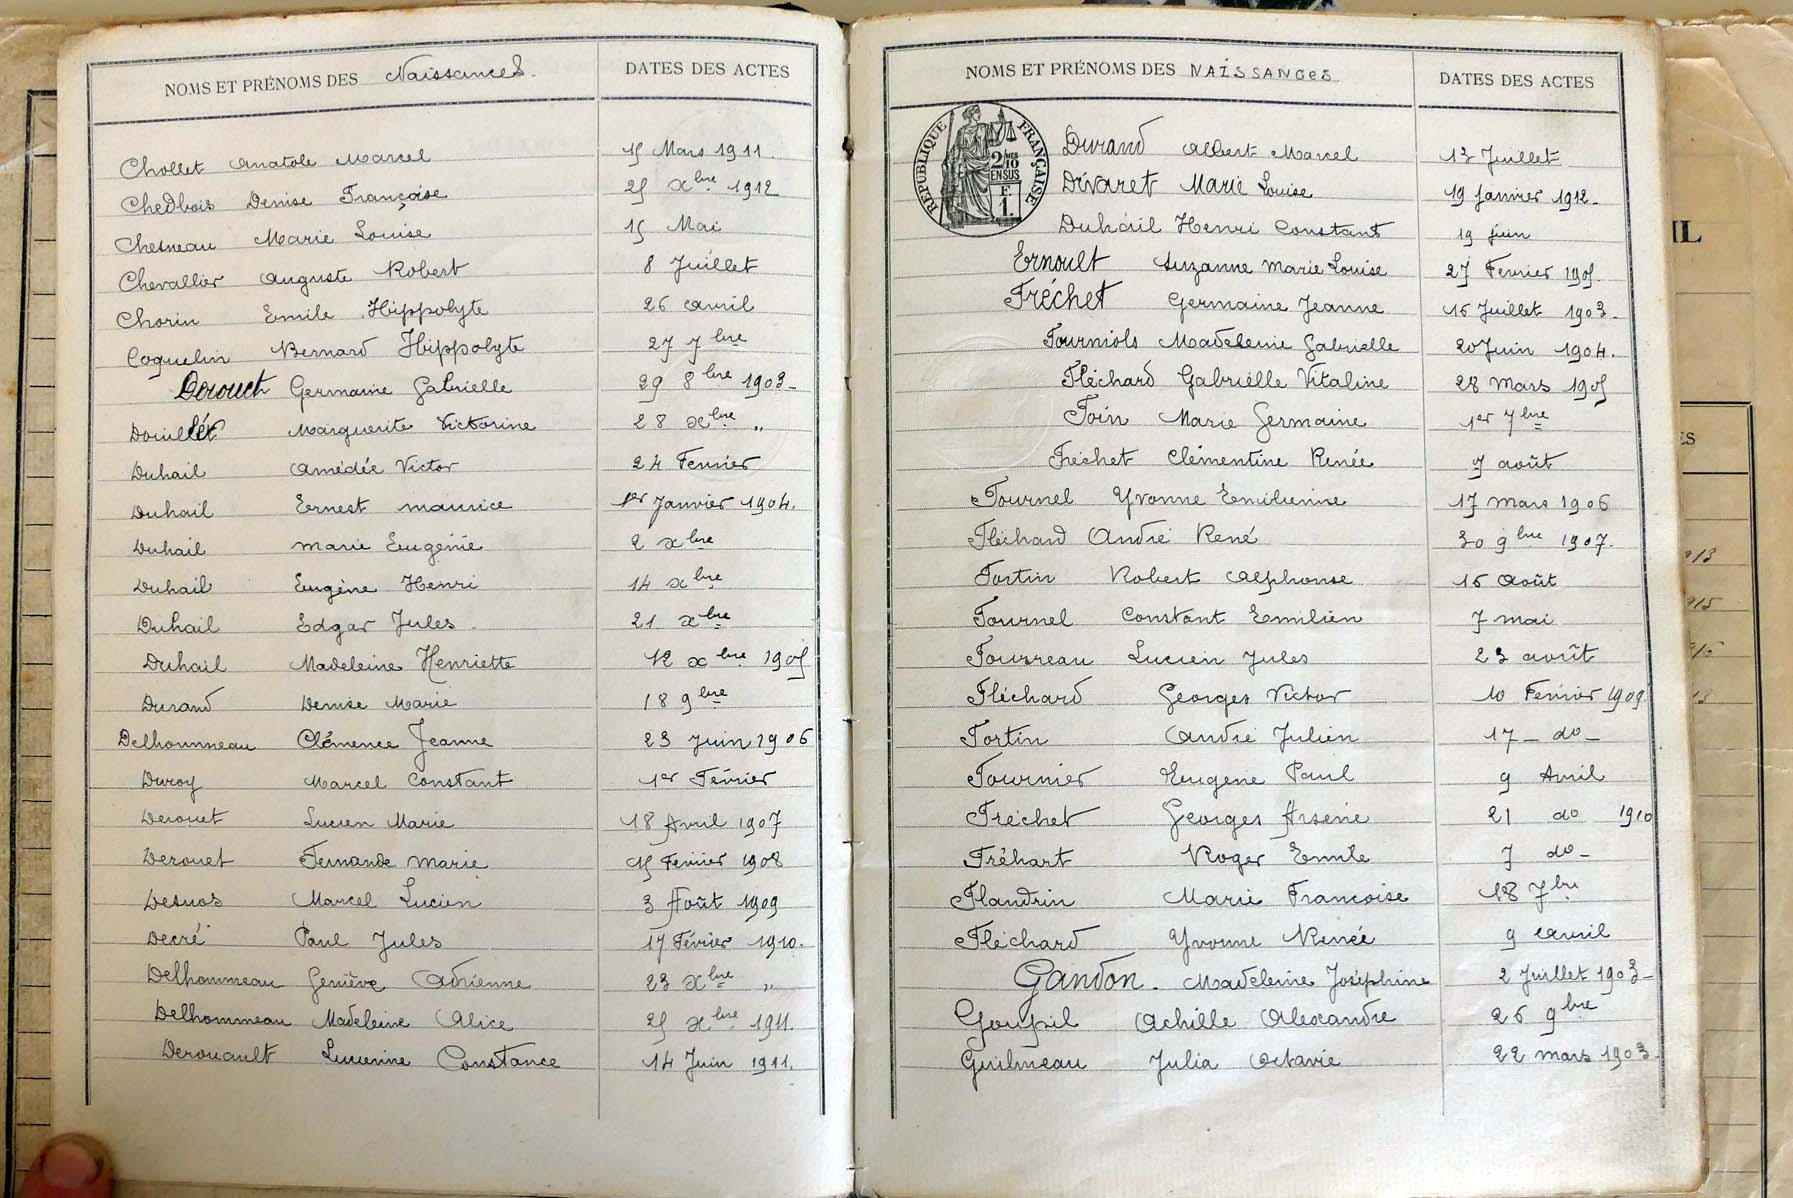 NOMS ET PRÉNOMS DES Naissances. DATES DES ACTES
Chollet Anatole Marcel 15 Mars 1911.
Chedbois Denise Françoise 25 xbre 1912
Chesneau Marie Louise 15 Mai
Chevallier Auguste Robert 8 Juillet
Chorin Emile Hippolyte 26 avril
Coquelin Bernard Hippolyte 27 7bre
Derouet Germaine Gabrielle 29 8bre 1903-
Douillet Marguerite Victorine 28 xbre "
Duhail Amédée Victor 24 Fevrier
Duhail Ernest maurice 1er Janvier 1904.
Duhail Marie Eugénie 2 xbre
Duhail Eugène Henri 14 xbre
Duhail Edgar Jules 21 xbre
Duhail Madeleine Henriette 12 xbre 1905
Durand Denise Marie 18 9bre
Delhommeau Clémence Jeanne 23 Juin 1906
Duroy Marcel Constant 1er Février
Derouet Lucien Marie 18 Avril 1907
Derouet Fernande Marie 15 Fevrier 1908
Desnos Marcel Lucien 3 Août 1909
Decré Paul Jules 17 Février 1910.
Delhommeau Geniève Adrienne 23 xbre "
Delhommeau Madeleine Alice 25 xbre 1911.
Derouault Lucienne Constance 14 Juin 1911.
NOMS ET PRÉNOMS DES NAISSANCES DATES DES ACTES
RÉPUBLIQUE FRANÇAISE
2/10 EN SUS
F. 1.
Durand Albert Marcel 13 Juillet
Divaret Marie Louise 19 Janvier 1912-
Duhail Henri Constant 19 Juin
Ernoult Suzanne Marie Louise 27 Fevrier 1905.
Fréchet Germaine Jeanne 16 Juillet 1903-
Fourniols Madeleine Gabrielle 20 Juin 1904.
Fléchard Gabrielle Vitaline 28 mars 1905
Foin Marie Germaine 1er 7bre
Fréchet Clémentine Renée 7 août
Fournel Yvonne Emilienne 17 mars 1906
Fléchard André René 30 9bre 1907.
Fortin Robert Alphonse 16 Août
Fournel Constant Emilien 7 mai
Fourreau Lucien Jules 23 août
Fléchard Georges Victor 10 Fevrier 1909.
Fortin André Julien 17 - do -
Fournier Eugène Paul 9 Avril
Fréchet Georges Arsène 21 do 1910
Fréhart Roger Emile 7 do -
Flandrin Marie Francoise 18 7bre
Fléchard Yvonne Renée 9 avril
Gandon. Madeleine Joséphine 2 Juillet 1903-
Goupil Achille Alexandre 26 9bre
Guilmeau Julia Octavie 22 mars 1903-